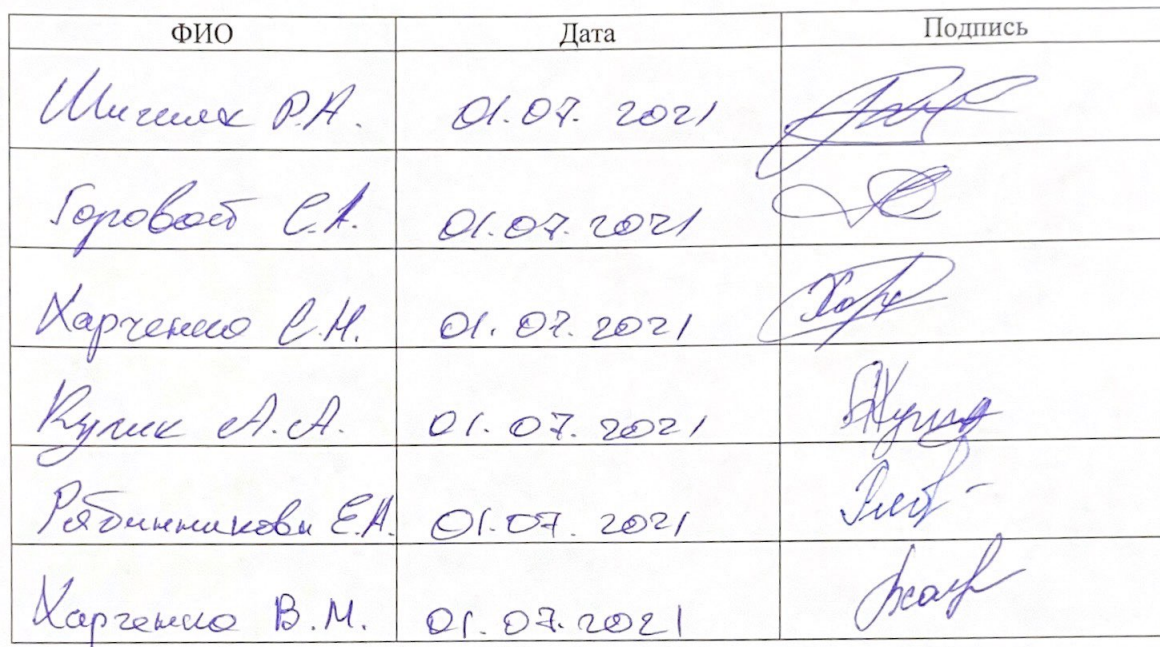 ФИО Дата Подпись
Шигиляк Р.А. 01.07.2021
Горовой С.А. 01.07.2021
Харченко С.Н. 01.07.2021
Кулик А.А. 01.07.2021
Рябинникова Е.А. 01.07.2021
Харченко В.М. 01.07.2021